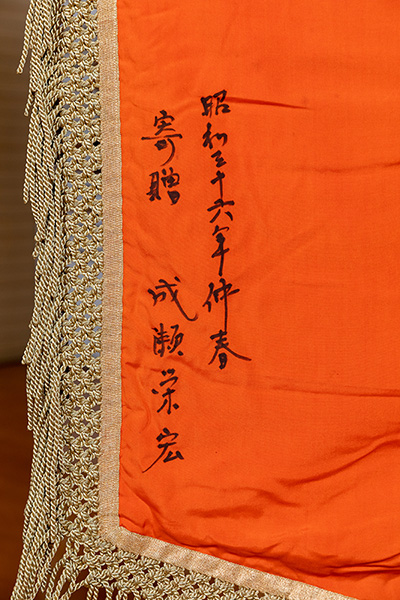 昭和三十六年仲春
寄贈 成瀬栄宏